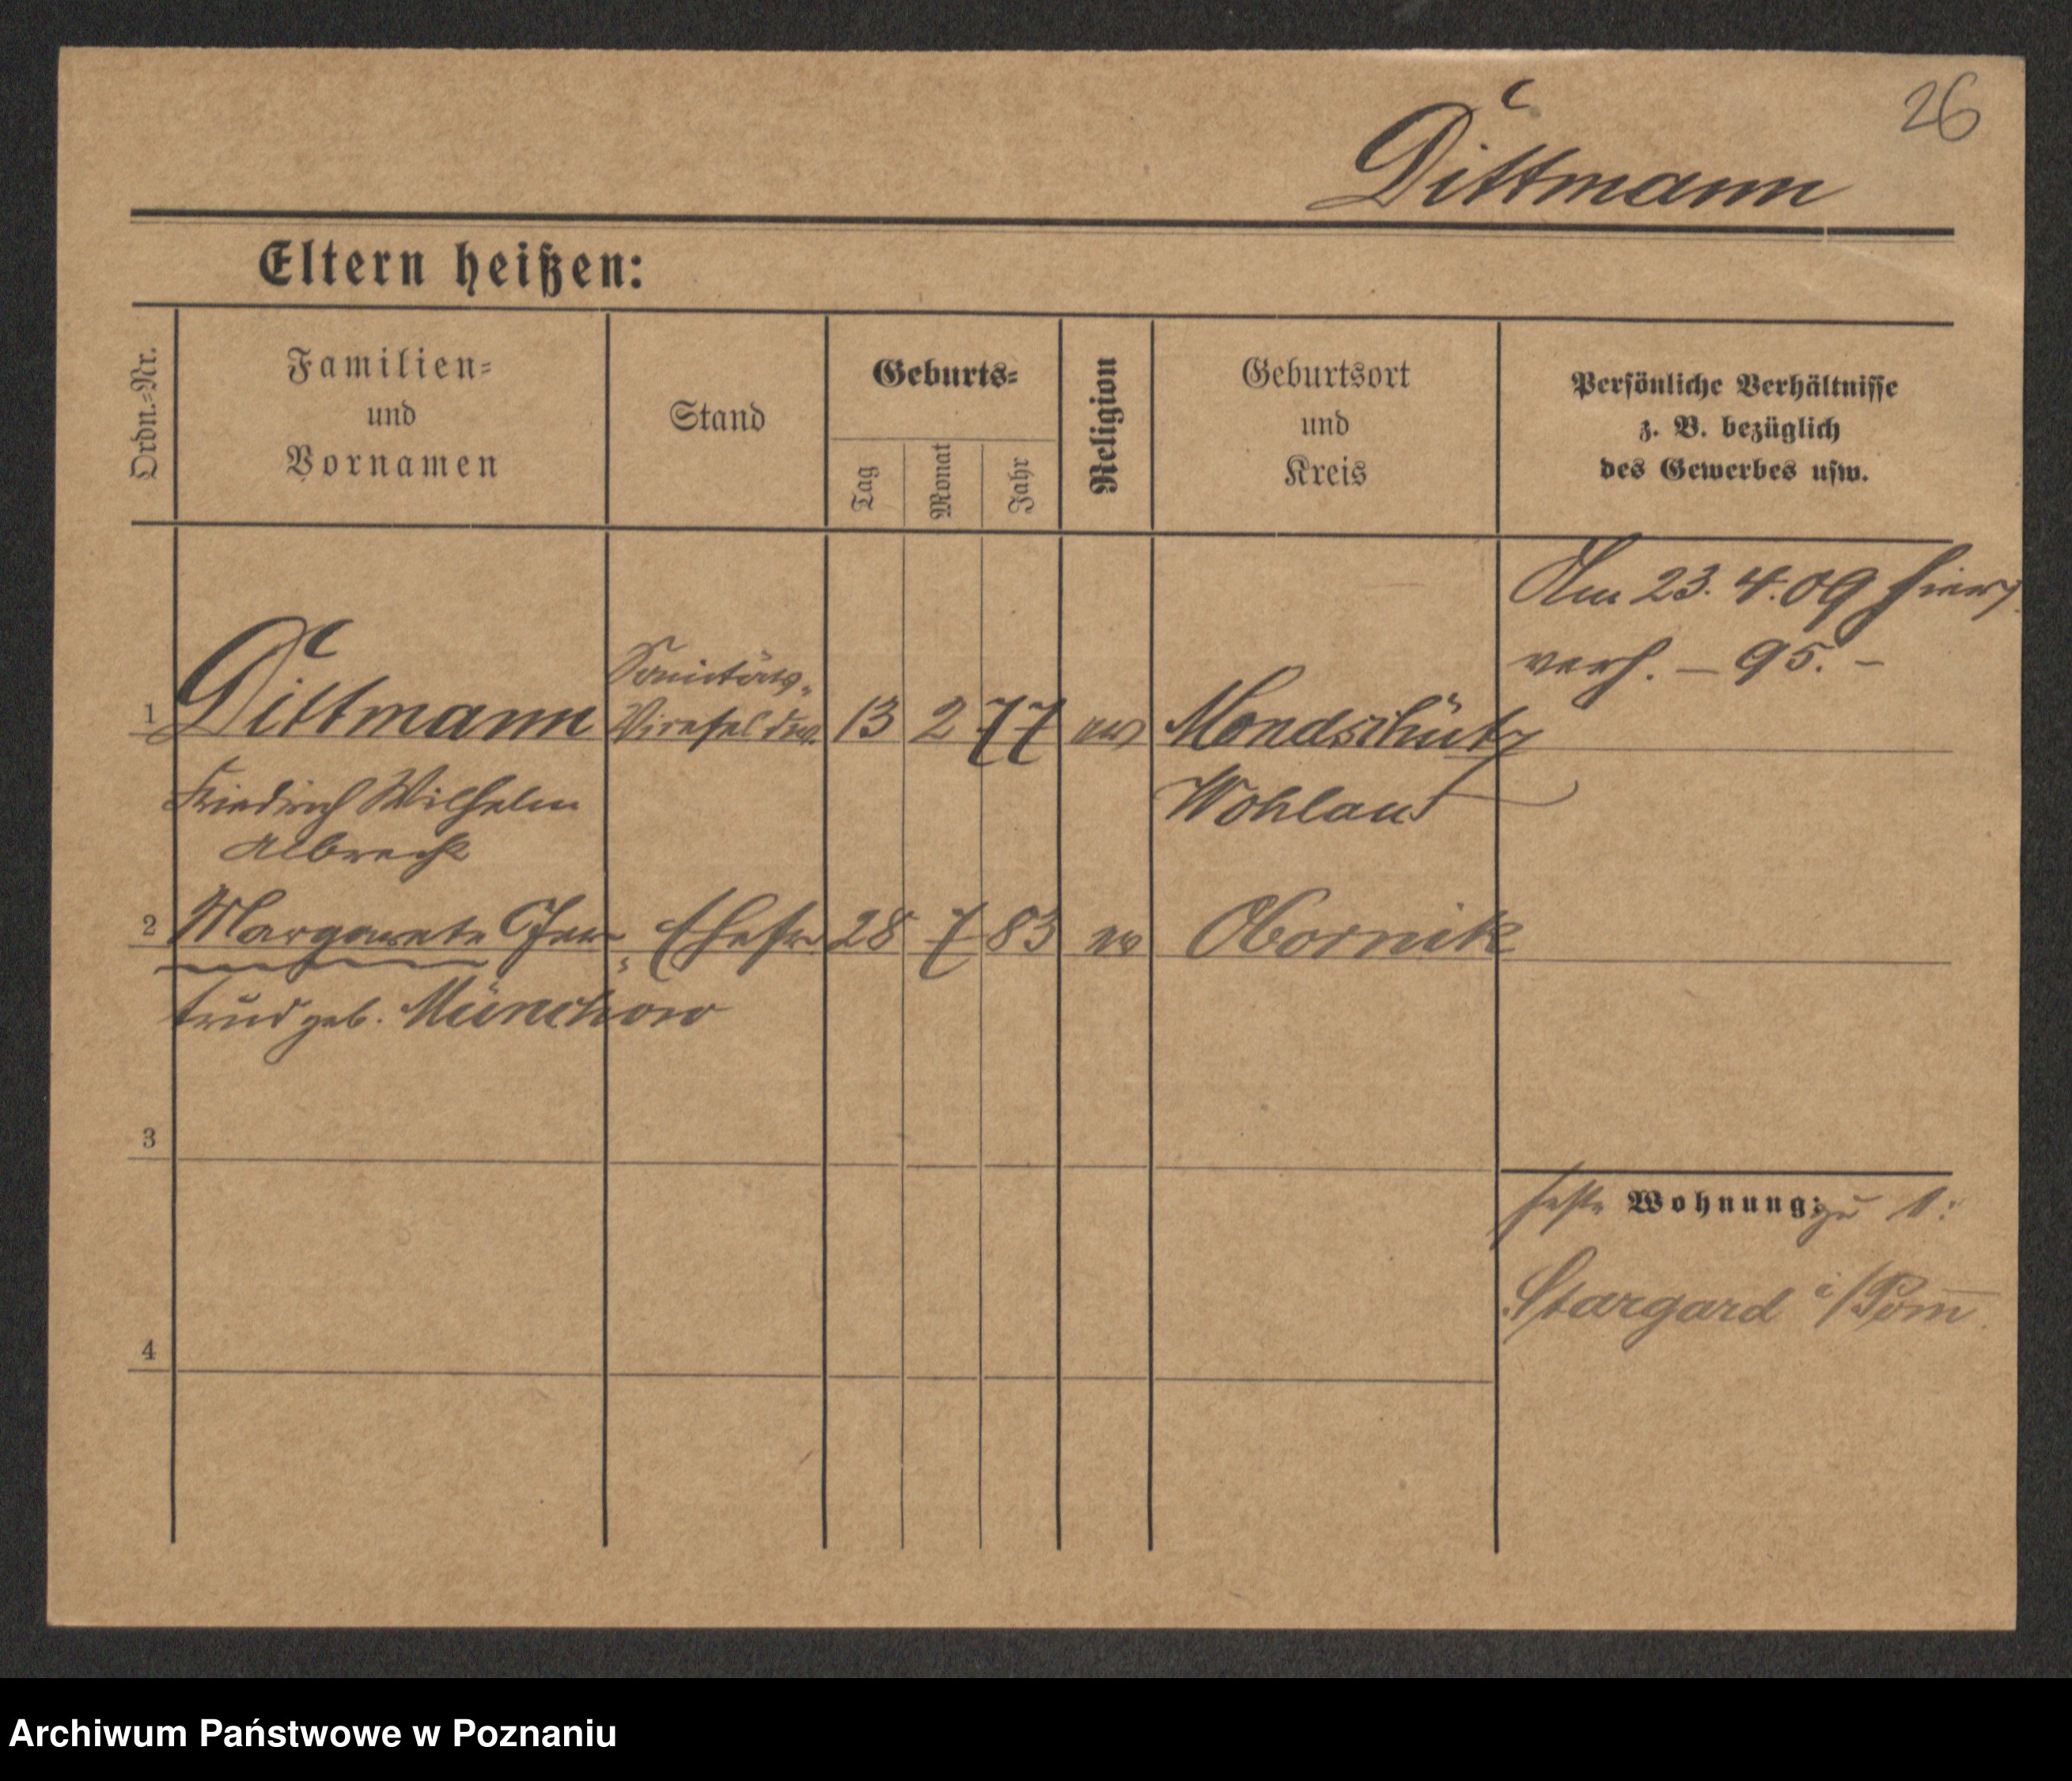 26
Dittmann
Eltern heißen:
Ordn.-Nr.
Familien-
und
Vornamen
Stand
Geburts-
Tag
Monat
Jahr
Religion
Geburtsort
und
Kreis
Persönliche Verhältnisse
z. B. bezüglich
des Gewerbes usw.
Am 23. 4. 09 hier
verh. – 95. –
1 Dittmann Sanitäts- 13 2 77 ev Mondschütz
Vizefeldw.
Friedrich Wilhelm Wohlau
Albrecht
2 Margarete Ger- Ehefr 28 7 83 ev Obornik
trud geb. Münchow
3
Wohnung: zu 1:
Stargard i/Pom
4
Archiwum Państwowe w Poznaniu